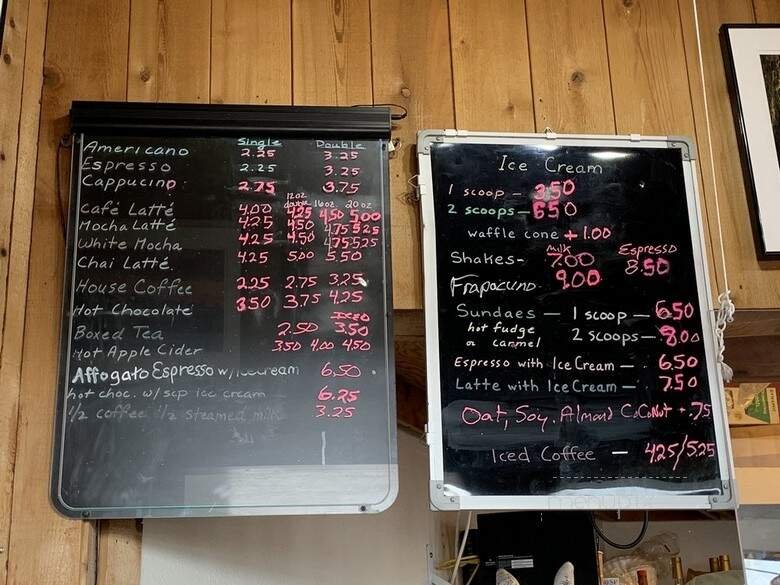 Single Double
Americano 2.25 3.25
Espresso 2.25 3.25
Cappucino 2.75 3.75
12oz double 16oz. 20oz
Café Latté 4.00 4.25 4.50 5.00
Mocha Latté 4.25 4.50 4.75 5.25
White Mocha 4.25 4.50 4.75 5.25
Chai Latté 4.25 5.00 5.50
House Coffee 2.25 2.75 3.25
Hot Chocolate 3.50 3.75 4.25
Iced
Boxed Tea 2.50 3.50
Hot Apple Cider 3.50 4.00 4.50
Affogato Espresso w/ 6.50
hot choc. w/ scp ice cream 6.25
1/2 coffee 1/2 steamed milk 3.25
Ice Cream
1 scoop - 3.50
2 scoops - 6.50
waffle cone + 1.00
Milk Espresso
Shakes- 7.00 8.50
Frapaccino 9.00
Sundaes — 1 scoop — 6.50
hot fudge or carmel 2 scoops - 8.00
Espresso with Ice Cream — 6.50
Latte with Ice Cream — 7.50
Oat, Soy, Almond CoCoNut + .75
Iced Coffee — 4.25/5.25